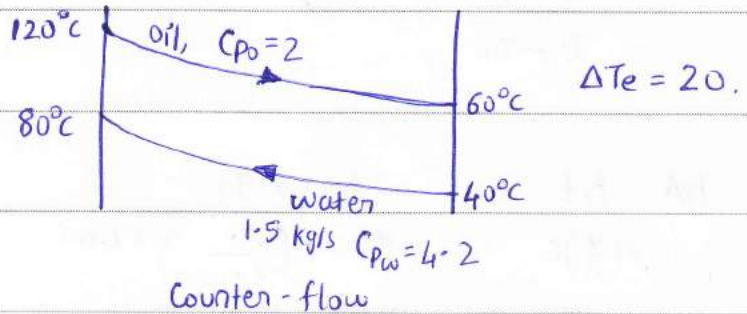 120°C oil, Cpo = 2
60°C ΔTe = 20.
80°C
40°C
water
1.5 kg/s Cpw = 4.2
Counter-flow